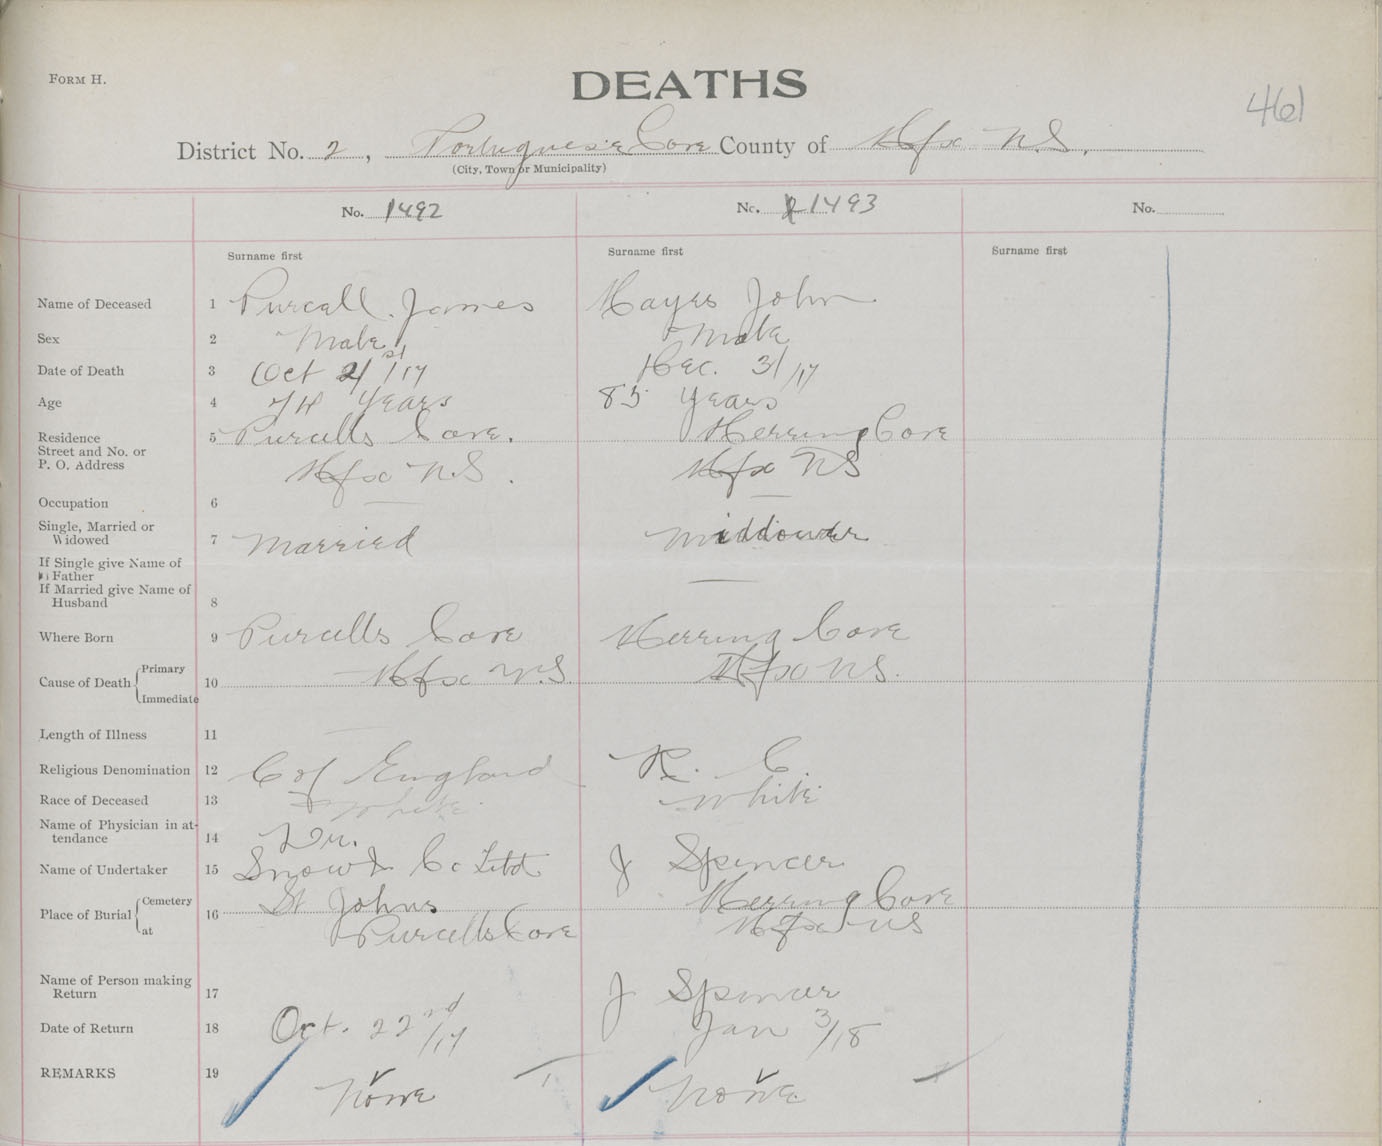 FORM H.
DEATHS
461
District No. 2, Portuguese Cove County of Hfx N.S.
(City, Town or Municipality)
No. 1492 No. 1493 No.
Surname first Surname first Surname first
Name of Deceased 1 Purcell James Hayes John
Sex 2 Male Male
Date of Death 3 Oct 21st/17 Dec. 31/17
Age 4 74 Years 85 Years
Residence 5 Purcells Cove. Herring Cove
Street and No. or
P. O. Address Hfx N.S. Hfx NS
Occupation 6 — —
Single, Married or
Widowed 7 Married Widdower
If Single give Name of
Father
If Married give Name of
Husband 8 —
Where Born 9 Purcells Cove Herring Cove
Hfx N.S. Hfx NS.
Cause of Death { Primary
Immediate 10
Length of Illness 11 —
Religious Denomination 12 C of England R. C.
Race of Deceased 13 White White
Name of Physician in at-
tendance 14 Dr.
Name of Undertaker 15 Snow & Co Ltd J Spencer
Place of Burial { Cemetery
at 16 St Johns Herring Cove
Purcells Cove Hfx NS
Name of Person making
Return 17 J Spencer
Date of Return 18 Oct. 22nd/17 Jan 3/18
REMARKS 19 None None